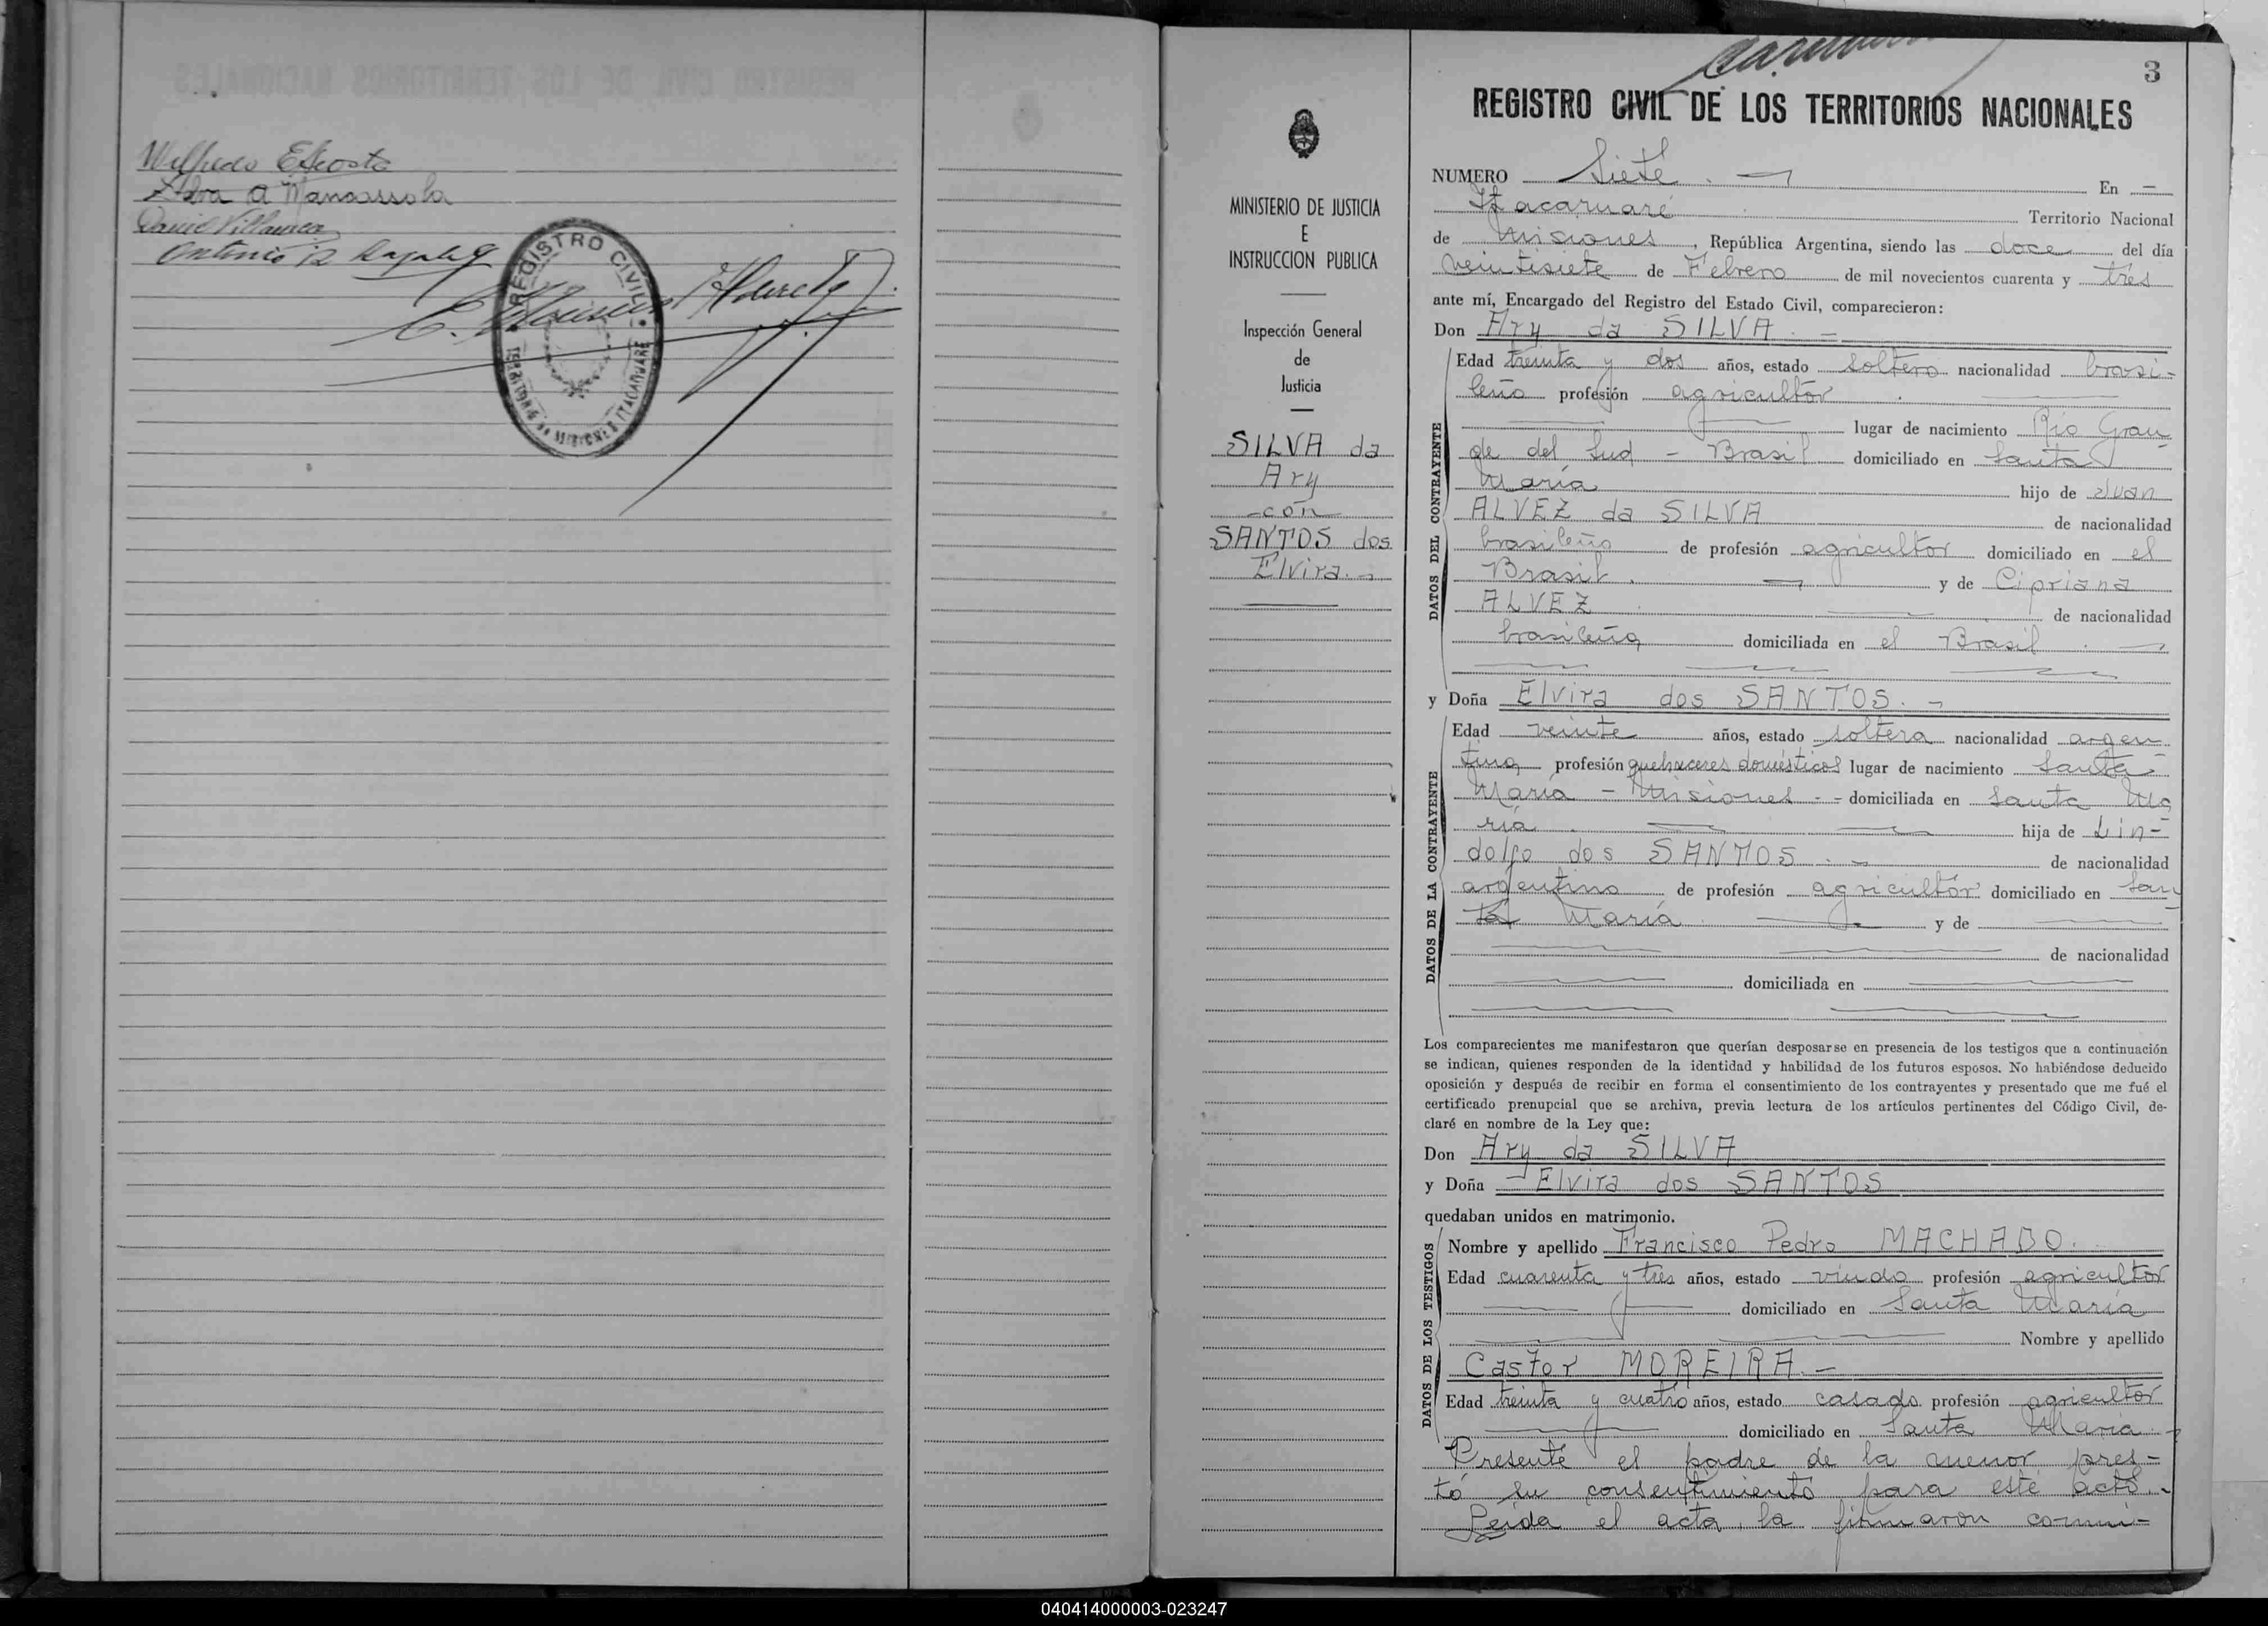 Wilfredo E Acosta
Elva A Manassola
Daniel Villanueva
Antonio R
REGISTRO CIVIL
TERRITORIO DE MISIONES ITACARUARE
3
REGISTRO CIVIL DE LOS TERRITORIOS NACIONALES
MINISTERIO DE JUSTICIA
E
INSTRUCCION PUBLICA
Inspección General
de
Justicia
SILVA da
Ary
-con-
SANTOS dos
Elvira.-
NUMERO Siete. - En -
Itacaruaré Territorio Nacional
de Misiones, República Argentina, siendo las doce del día
veintisiete de Febrero de mil novecientos cuarenta y tres
ante mí, Encargado del Registro del Estado Civil, comparecieron:
Don Ary da SILVA. -
DATOS DEL CONTRAYENTE
Edad treinta y dos años, estado soltero nacionalidad brasi-
leño profesión agricultor
lugar de nacimiento Río Gran
de del Sud - Brasil domiciliado en Santa
María hijo de Juan
ALVEZ da SILVA de nacionalidad
brasileño de profesión agricultor domiciliado en el
Brasil. - y de Cipriana
ALVEZ de nacionalidad
brasileña domiciliada en el Brasil. -
y Doña Elvira dos SANTOS. -
DATOS DE LA CONTRAYENTE
Edad veinte años, estado soltera nacionalidad argen
tina profesión quehaceres domésticos lugar de nacimiento Santa
María - Misiones - - domiciliada en Santa Ma
ría hija de Lin-
dolfo dos SANTOS. - de nacionalidad
argentino de profesión agricultor domiciliado en San
ta María y de
de nacionalidad
domiciliada en
Los comparecientes me manifestaron que querían desposarse en presencia de los testigos que a continuación
se indican, quienes responden de la identidad y habilidad de los futuros esposos. No habiéndose deducido
oposición y después de recibir en forma el consentimiento de los contrayentes y presentado que me fué el
certificado prenupcial que se archiva, previa lectura de los artículos pertinentes del Código Civil, de-
claré en nombre de la Ley que:
Don Ary da SILVA
y Doña - Elvira dos SANTOS
quedaban unidos en matrimonio.
DATOS DE LOS TESTIGOS
Nombre y apellido Francisco Pedro MACHADO.
Edad cuarenta y tres años, estado viudo profesión agricultor
domiciliado en Santa María
Nombre y apellido
Castor MOREIRA. -
Edad treinta y cuatro años, estado casado profesión agricultor
domiciliado en Santa María. -
Presente el padre de la menor pres-
tó su consentimiento para este acto. -
Leida el acta, la firmaron conmi-
040414000003-023247